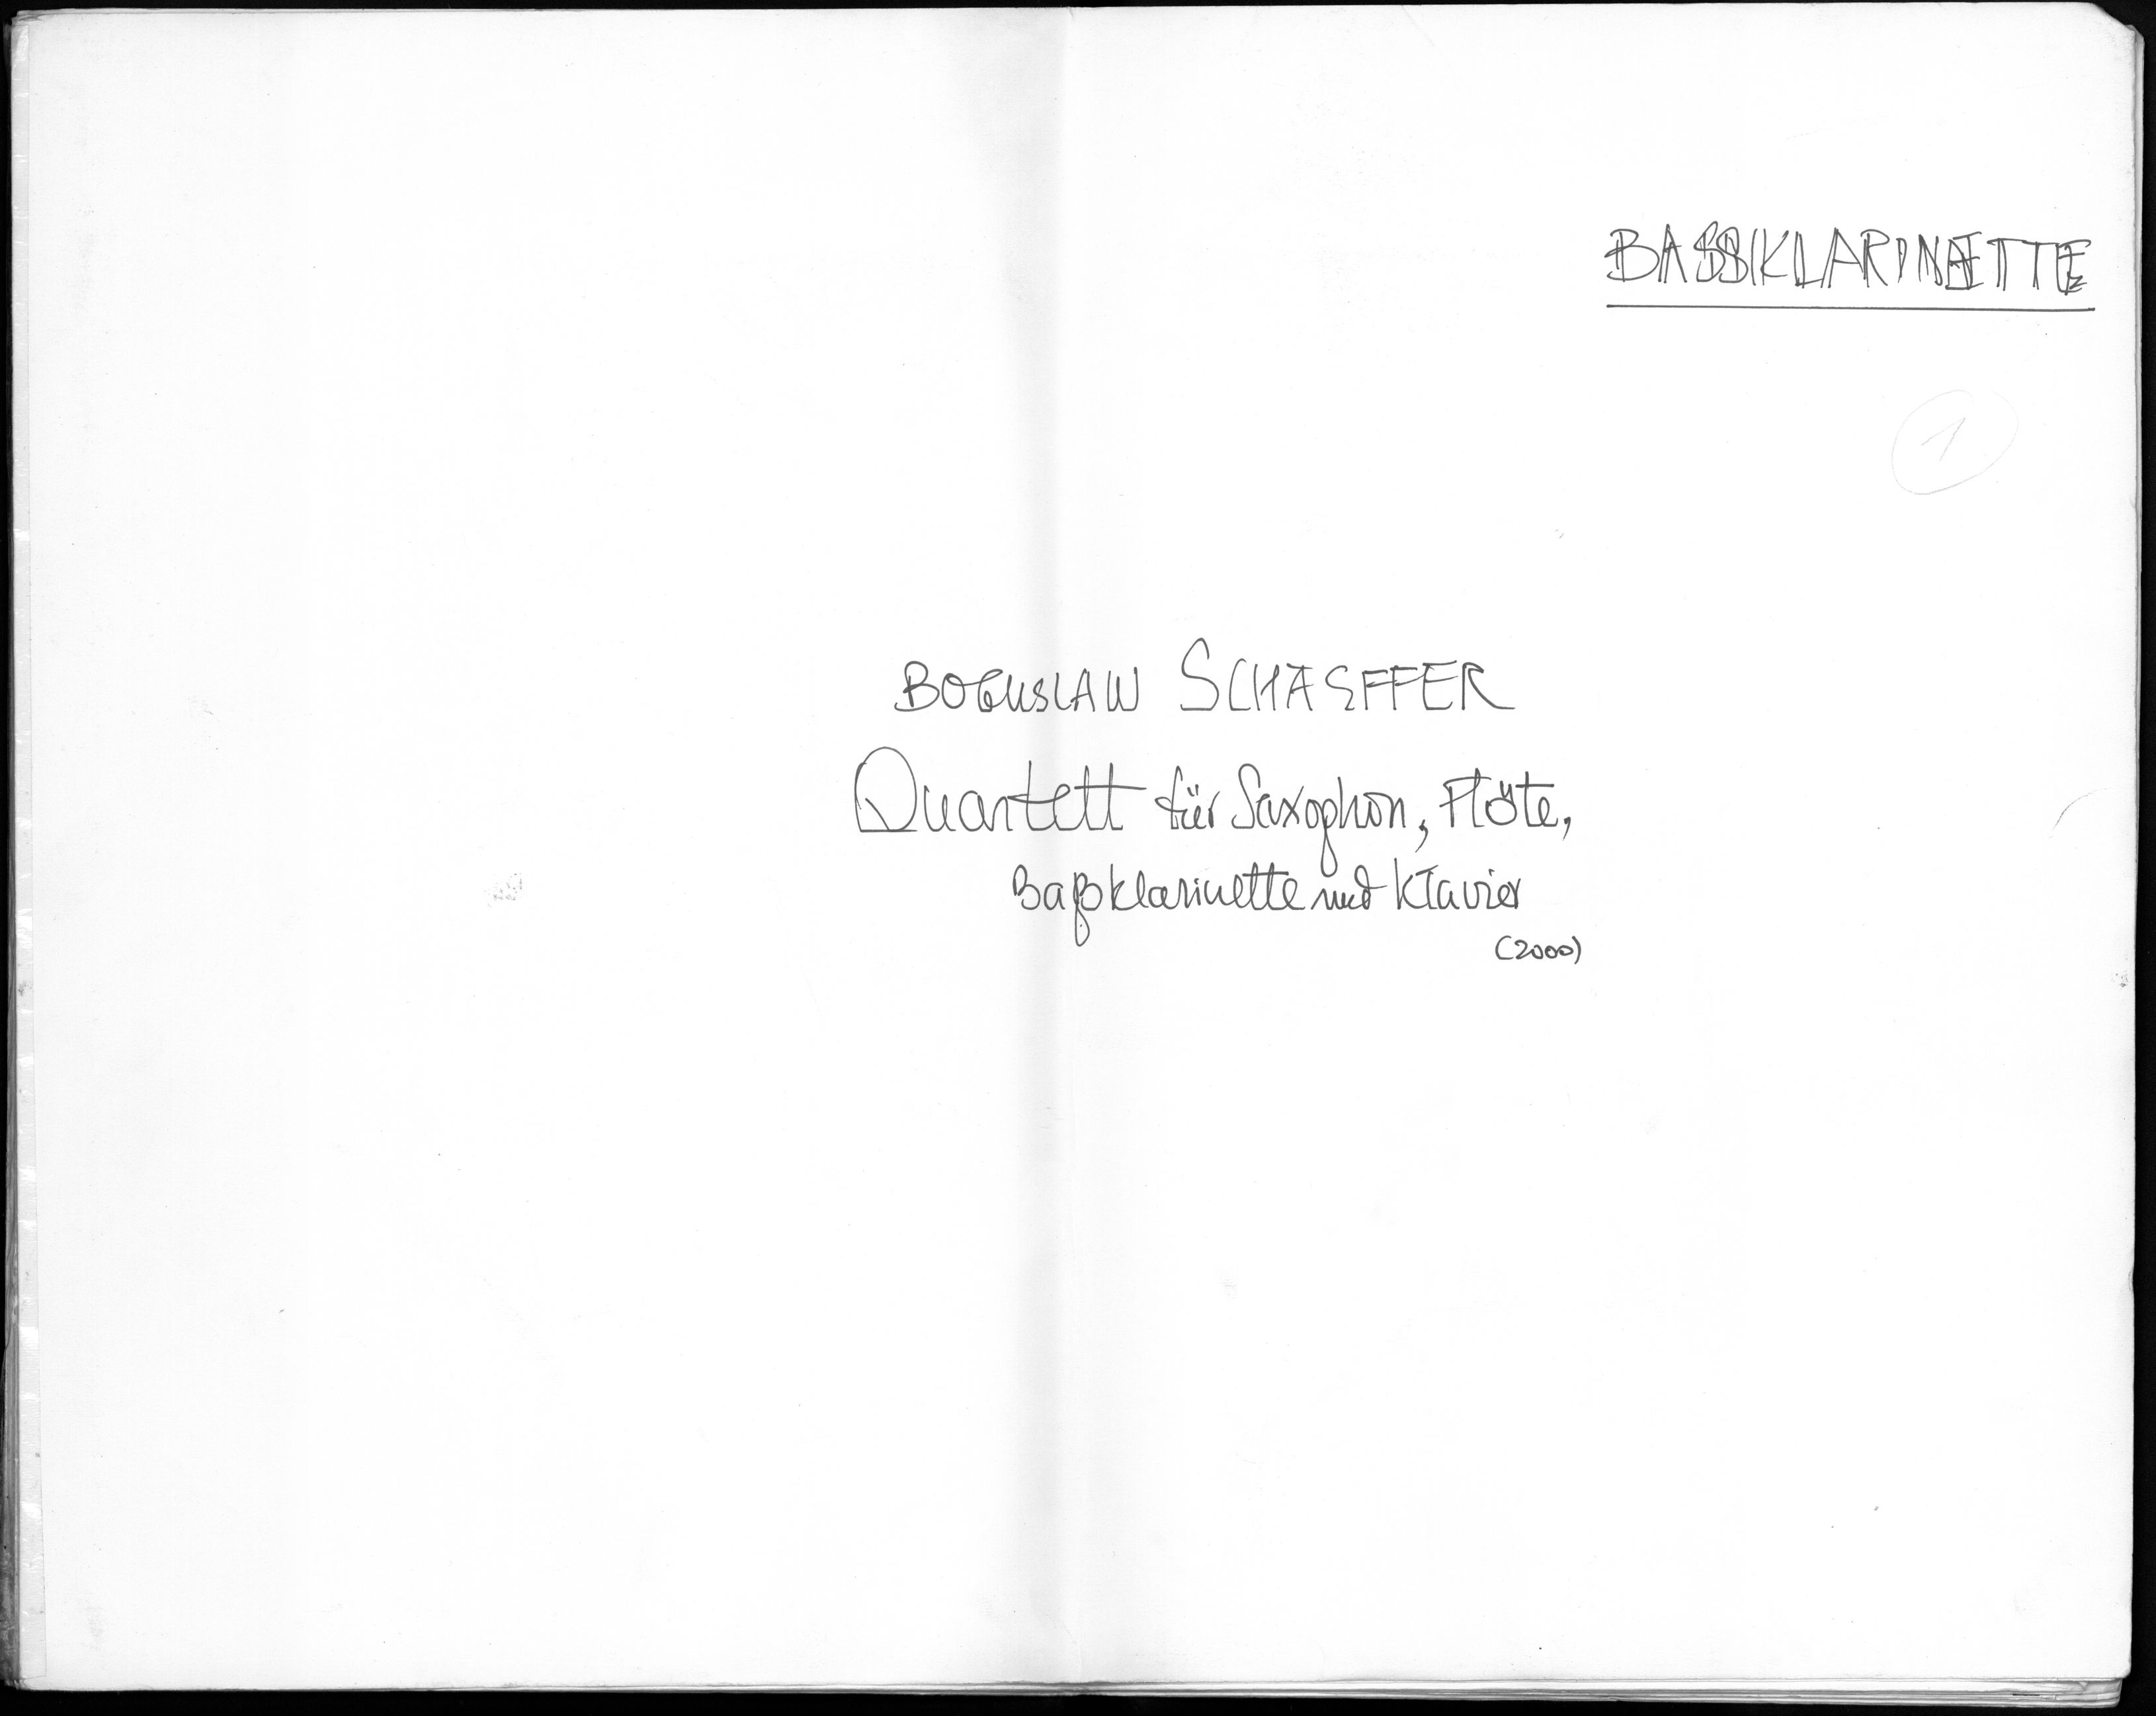 BASSKLARINETTE
1
BOGUSLAW SCHAEFFER
Quartett für Saxophon, Flöte,
Baßklarinette und Klavier
(2000)